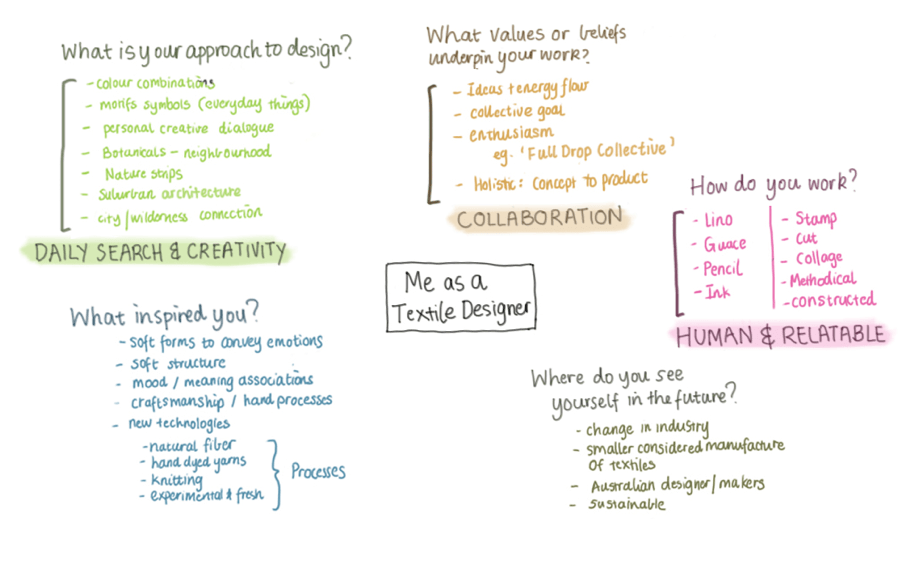 What is your approach to design?
- colour combinations
- motifs symbols (everyday things)
- personal creative dialogue
- Botanicals - neighbourhood
- Nature strips
- Suburban architecture
- city/wilderness connection
DAILY SEARCH & CREATIVITY
What values or beliefs
underpin your work?
- Ideas + energy flow
- collective goal
- enthusiasm
eg. 'Full Drop Collective'
- Holistic: Concept to product
COLLABORATION
How do you work?
- Lino
- Guace
- Pencil
- Ink
- Stamp
- Cut
- Collage
- Methodical
- constructed
HUMAN & RELATABLE
Me as a
Textile Designer
What inspired you?
- soft forms to convey emotions
- soft structure
- mood / meaning associations
- craftsmanship / hand processes
- new technologies
- natural fiber
- hand dyed yarns
- knitting
- experimental & fresh
Processes
Where do you see
yourself in the future?
- change in industry
- smaller considered manufacture
of textiles
- Australian designer/makers
- sustainable